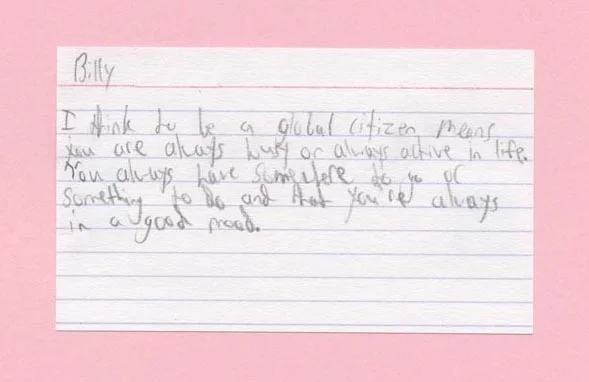 Billy
I think to be a global citizen means
you are always busy or always active in life.
You always have somewhere to go or
something to do and that you're always
in a good mood.